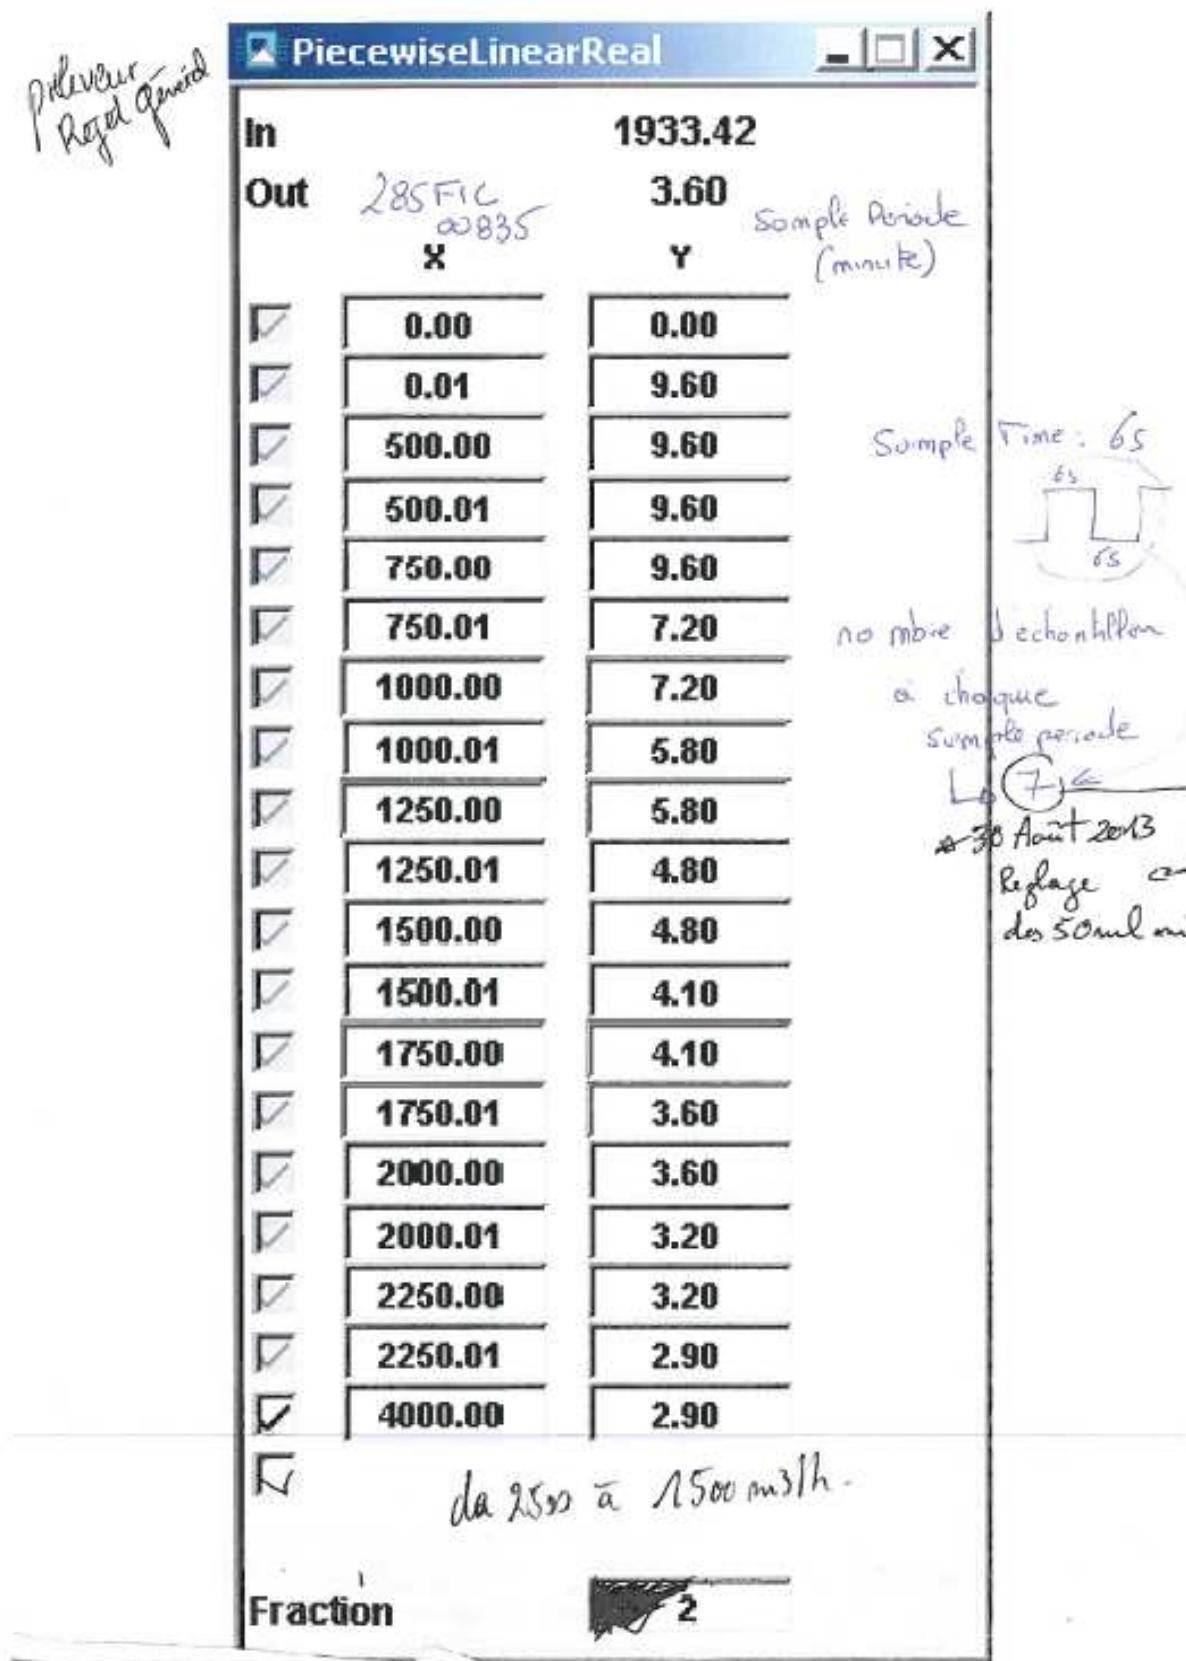 préleveur
Rejet Général
PiecewiseLinearReal
In 1933.42
Out 285FIC 3.60
00835
Sample Periode
(minute)
X Y
0.00 0.00
0.01 9.60
500.00 9.60
500.01 9.60
750.00 9.60
750.01 7.20
1000.00 7.20
1000.01 5.80
1250.00 5.80
1250.01 4.80
1500.00 4.80
1500.01 4.10
1750.00 4.10
1750.01 3.60
2000.00 3.60
2000.01 3.20
2250.00 3.20
2250.01 2.90
4000.00 2.90
Sample Time: 6s
6s
6s
nombre d'echantillon
à chaque
sample periode
7
30 Août 2013
Reglage
des 50ml
à 1500 m3/h.
Fraction 2